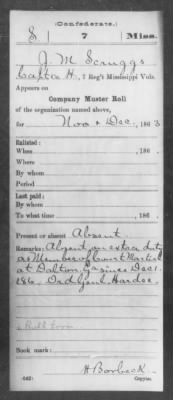 (Confederate.)
S 7 Miss.
J. M. Scruggs
Capt Co H, 7 Reg't Mississippi Vols.
Appears on
Company Muster Roll
of the organization named above,
for Nov & Dec, 1863
Enlisted:
When , 186 .
Where
By whom
Period
Last paid:
By whom
To what time , 186 .
Present or absent Absent
Remarks: Absent on extra duty
as Member of Court Martial
at Dalton, Ga since Dec 1
186 . Ord Genl Hardee.
Book mark:
H Borbeck
(642) Copyist.